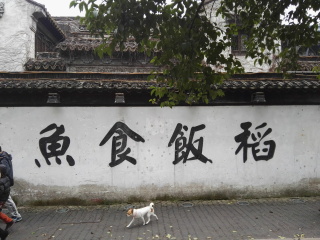 稻飯食魚